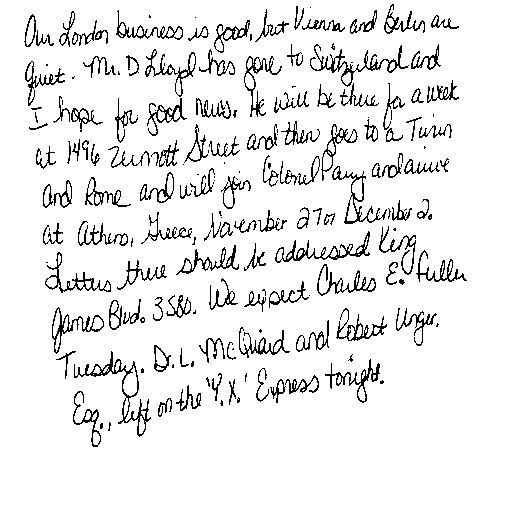 Our London business is good, but Vienna and Berlin are
quiet. Mr. D Lloyd has gone to Switzerland and
I hope for good news. He will be there for a week
at 1496 Zermott Street and then goes to a Turin
and Rome and will join Colonel Parry and arrive
at Athens, Greece, November 27 or December 2.
Letters there should be addressed King
James Blvd. 3580. We expect Charles E. Fuller
Tuesday. Dr. L. McQuaid and Robert Unger,
Esq., left on the 'Y.X.' Express tonight.